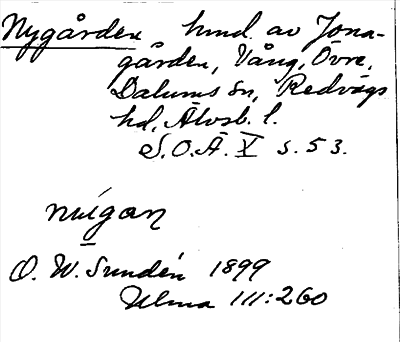 Nygården hmd. av Jona-
gården, Vång, Övre,
Dalums Sn, Redvägs
hd, Älvsb. l.
S.O.Ä. V s. 53.
nuígan
O. W. Sundén 1899
Ulma 111:260